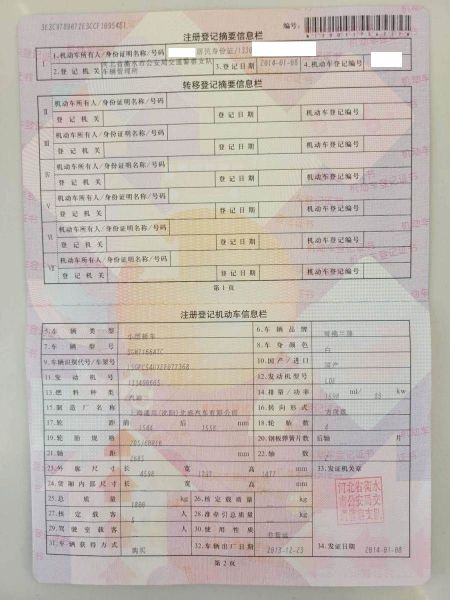 注册登记摘要信息栏
编号:
1.机动车所有人/身份证明名称/号码 居民身份证/1330
2.登记机关 河北省衡水市公安局交通警察支队车辆管理所 3.登记日期 2014-01-08 4.机动车登记编号
转移登记摘要信息栏
II 机动车所有人/身份证明名称/号码
登记机关 登记日期 机动车登记编号
III 机动车所有人/身份证明名称/号码
登记机关 登记日期 机动车登记编号
IV 机动车所有人/身份证明名称/号码
登记机关 登记日期 机动车登记编号
V 机动车所有人/身份证明名称/号码
登记机关 登记日期 机动车登记编号
VI 机动车所有人/身份证明名称/号码
登记机关 登记日期 机动车登记编号
VII 机动车所有人/身份证明名称/号码
登记机关 登记日期 机动车登记编号
第1页
注册登记机动车信息栏
5.车辆类型 小型轿车 6.车辆品牌 雪佛兰牌
7.车辆型号 8.车身颜色 白
9.车辆识别代号/车架号 10.国产/进口 国产
11.发动机号 12.发动机型号 LDE
13.燃料种类 汽油 14.排量/功率 1598 ml/ kw
15.制造厂名称 上海通用(沈阳)北盛汽车有限公司 16.转向形式 方向盘
17.轮距 前 1544 后 1558 mm 18.轮胎数 4
19.轮胎规格 205/60R16 20.钢板弹簧片数 后轴 片
21.轴距 2685 mm 22.轴数 2
23.外廓尺寸 长 4598 宽 1797 高 1477 mm 33.发证机关章
24.货厢内部尺寸 长 宽 高 mm
25.总质量 kg 26.核定载质量 kg
27.核定载客 5 人 28.准牵引总质量 kg
29.驾驶室载客 人 30.使用性质 非营运
31.车辆获得方式 购买 32.车辆出厂日期 2013-12-23 34.发证日期 2014-01-08
第2页